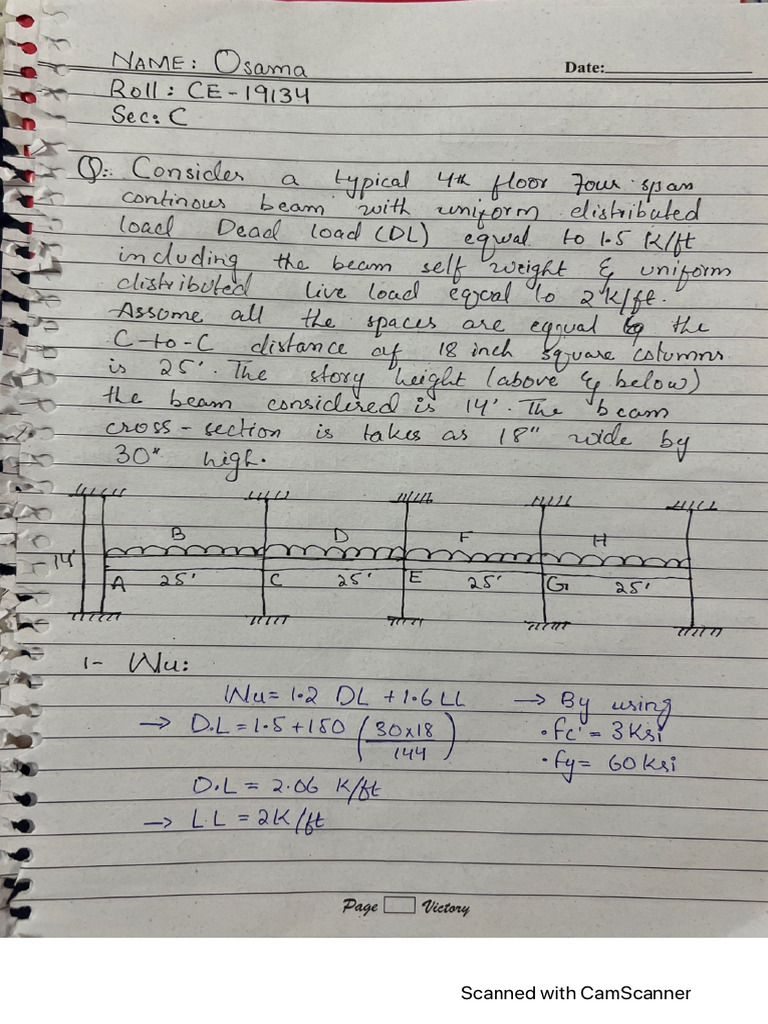 NAME: Osama
Date:
Roll: CE-19134
Sec: C
Q:. Consider a typical 4th floor Four span
continous beam with uniform distributed
load Dead load (DL) equal to 1.5 K/ft
including the beam self weight & uniform
distributed live load equal to 2 K/ft.
Assume all the spaces are equal to the
C-to-C distance of 18 inch square columns
is 25'. The story height (above & below)
the beam considered is 14'. The beam
cross-section is takes as 18" wide by
30" high.
B D F H
14'
A 25' C 25' E 25' G 25'
1- Wu:
Wu = 1.2 DL + 1.6 LL → By using
→ D.L = 1.5 + 150 (30x18/144) • Fc' = 3 Ksi
• Fy = 60 Ksi
D.L = 2.06 K/ft
→ L.L = 2K/ft
Page Victory
Scanned with CamScanner